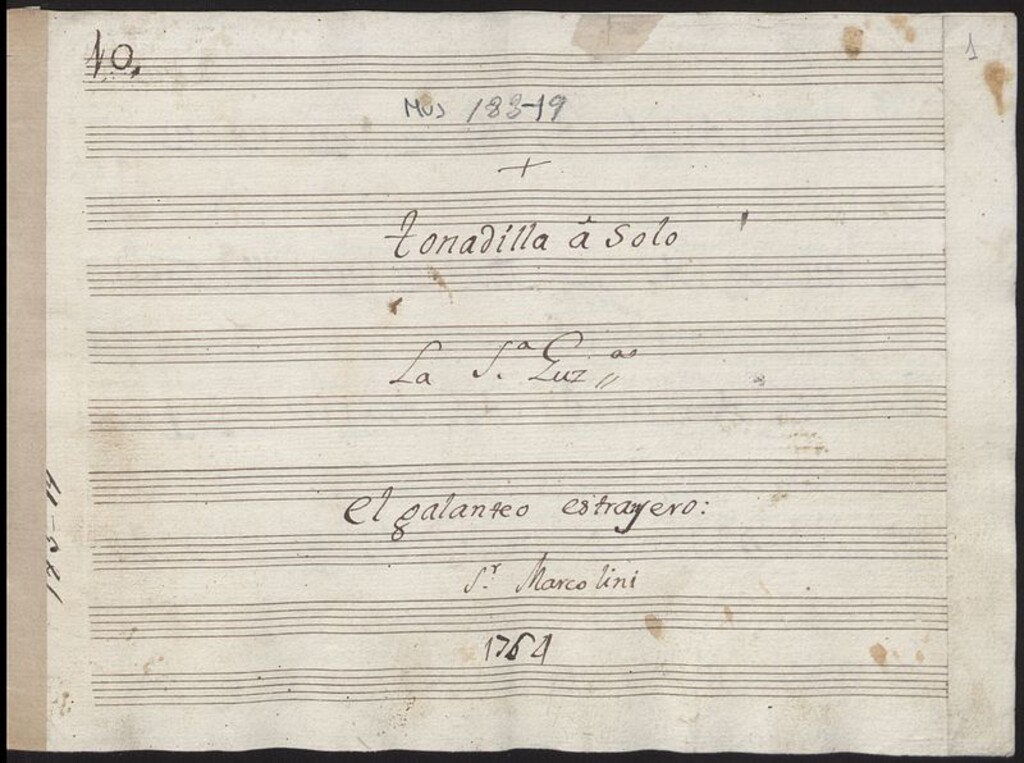 10.
1
Mus 183-19
+
tonadilla â Solo
La S.ª Luz ªˢ
el galanteo estranjero:
S.ʳ Marcolini
1764